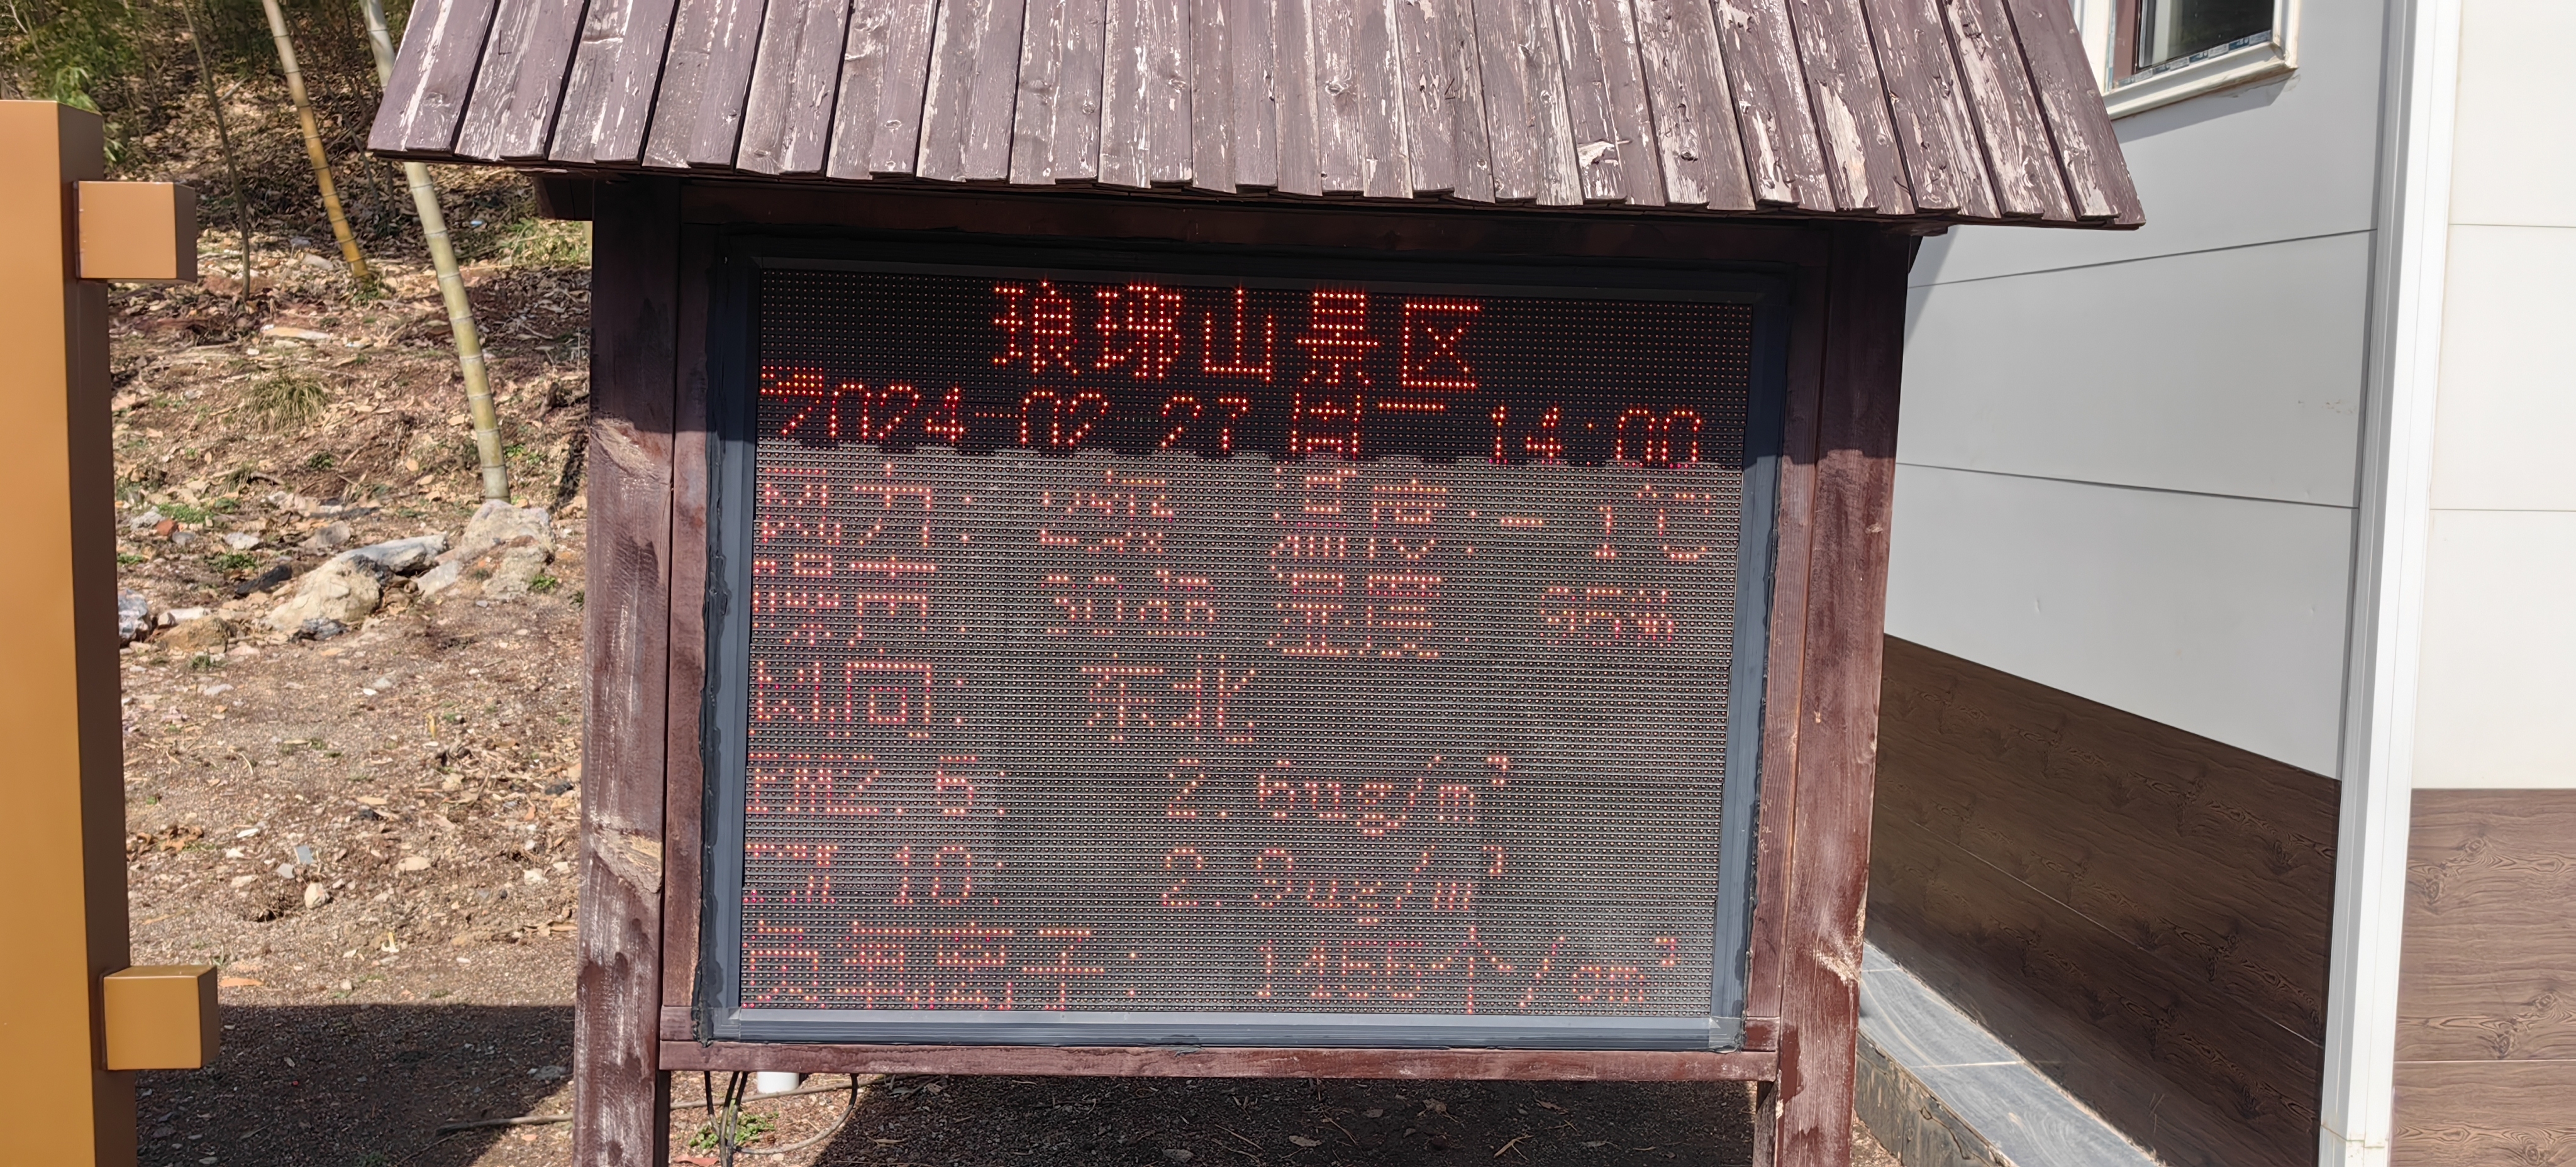 琅琊山景区
2024-02-27 周二 14:00
风力: 2级 温度:-1℃
噪声: 30dB 湿度: 95%
风向: 东北
PM2.5: 2.6ug/m³
PM10: 2.9ug/m³
负氧离子: 1455个/cm³